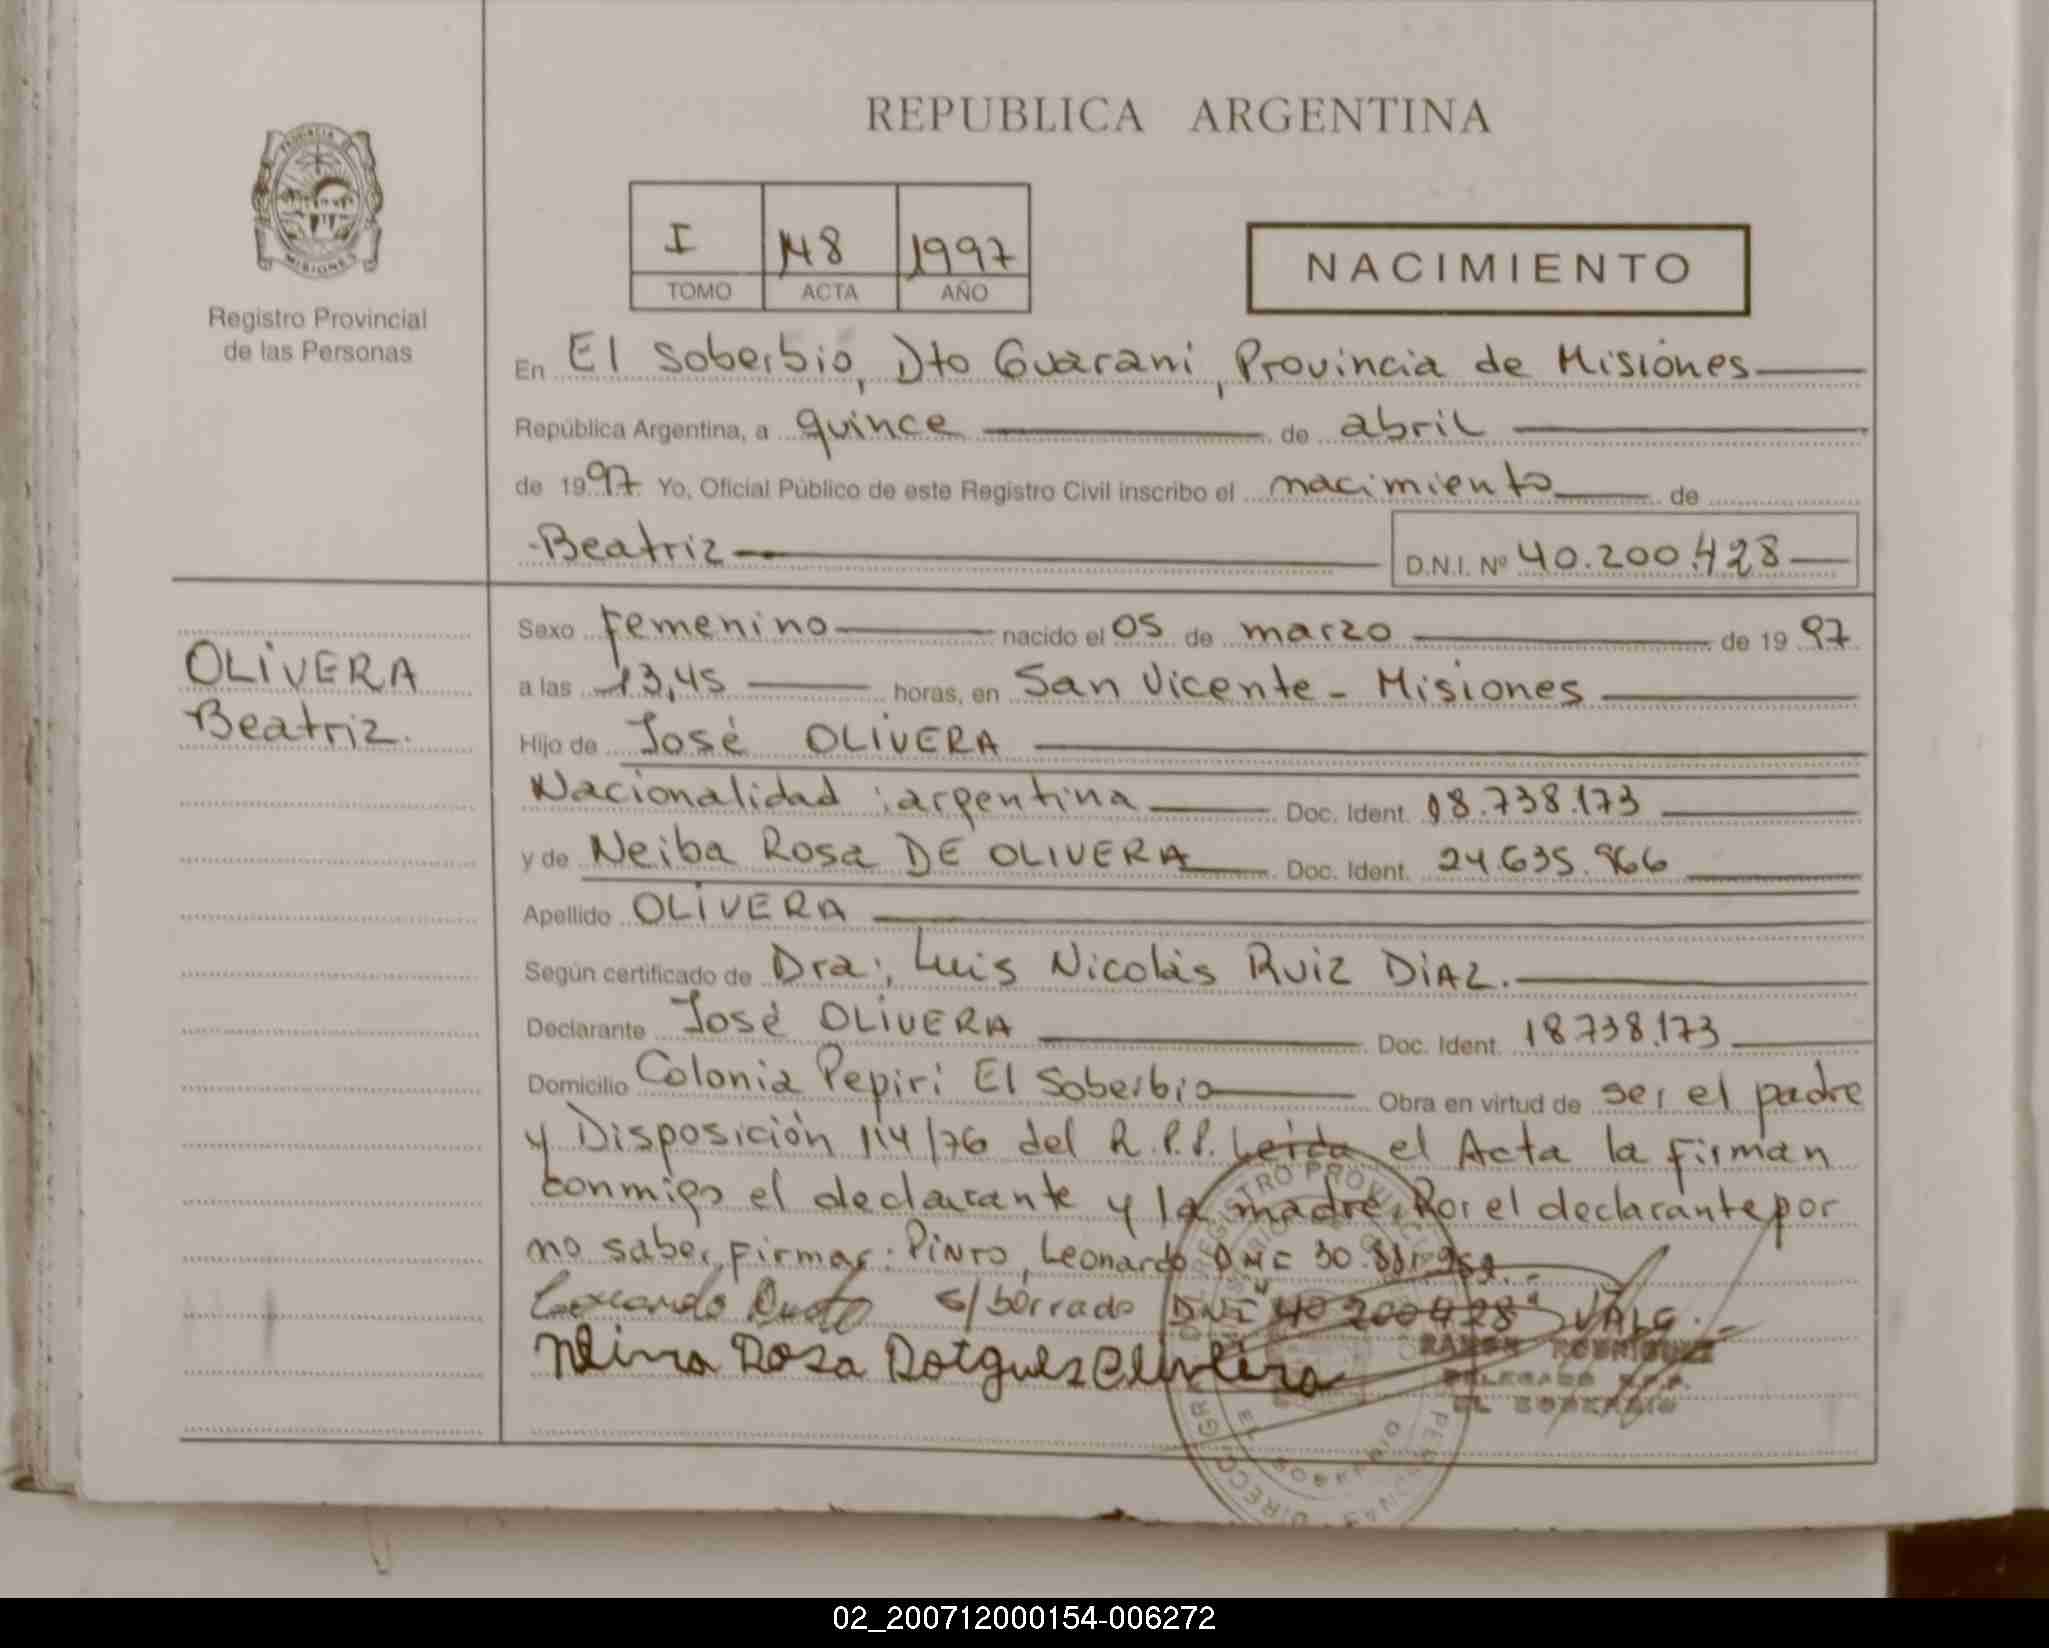 REPUBLICA ARGENTINA
PROVINCIA
MISIONES
Registro Provincial
de las Personas
I 148 1997
TOMO ACTA AÑO
NACIMIENTO
En El Soberbio, Dto Guarani, Provincia de Misiones
República Argentina, a quince de abril
de 1997 Yo, Oficial Público de este Registro Civil inscribo el nacimiento de
Beatriz D.N.I. Nº 40.200.428
OLIVERA
Beatriz.
Sexo femenino nacido el 05 de marzo de 1997
a las 13,45 horas, en San Vicente - Misiones
Hijo de José OLIVERA
Nacionalidad : argentina Doc. Ident. 18.738.173
y de Neiba Rosa DE OLIVERA Doc. Ident. 24.635.966
Apellido OLIVERA
Según certificado de Dra:, Luis Nicolás Ruiz DIAZ.
Declarante José OLIVERA Doc. Ident. 18.738.173
Domicilio Colonia Pepiri El Soberbio Obra en virtud de ser el padre
y Disposición 114/76 del R.P.P. Leida el Acta la firman
conmigo el declarante y la madre. Por el declarante por
no saber firmar: PINTO, Leonardo
s/borrado DNI "40.200.428" VALE.
Rosa
RAMON RODRIGUEZ
DELEGADO R.P.P.
EL SOBERBIO
02_200712000154-006272